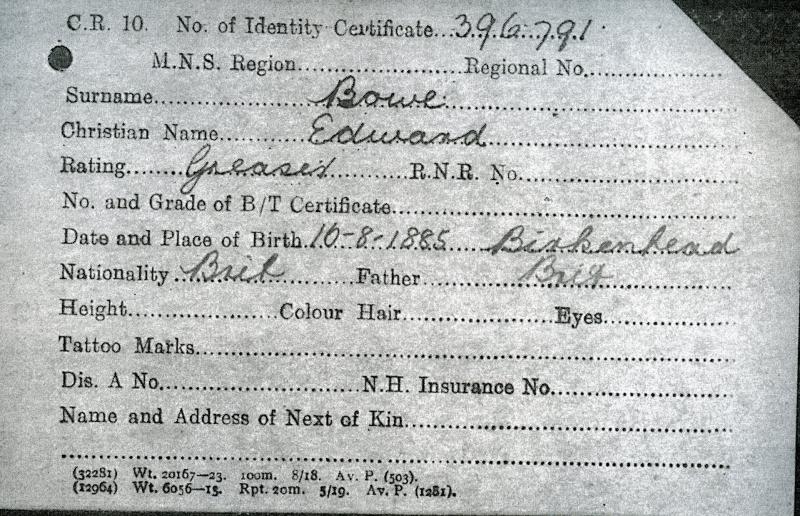 C.R. 10. No. of Identity Certificate...396791.
M.N.S. Region........................Regional No.....................
Surname.....................Bowe..............................
Christian Name............Edward..............................
Rating.......Greaser............R.N.R. No..............................
No. and Grade of B/T Certificate..............................
Date and Place of Birth.10-8-1885.....Birkenhead
Nationality..Brit............Father............Brit............
Height....................Colour Hair....................Eyes....................
Tattoo Marks..............................
Dis. A No..............................N.H. Insurance No..............................
Name and Address of Next of Kin..............................
(32281) Wt. 20167—23. 100m. 8/18. Av. P. (503).
(12964) Wt. 6056—15. Rpt. 20m. 5/19. Av. P. (1281).